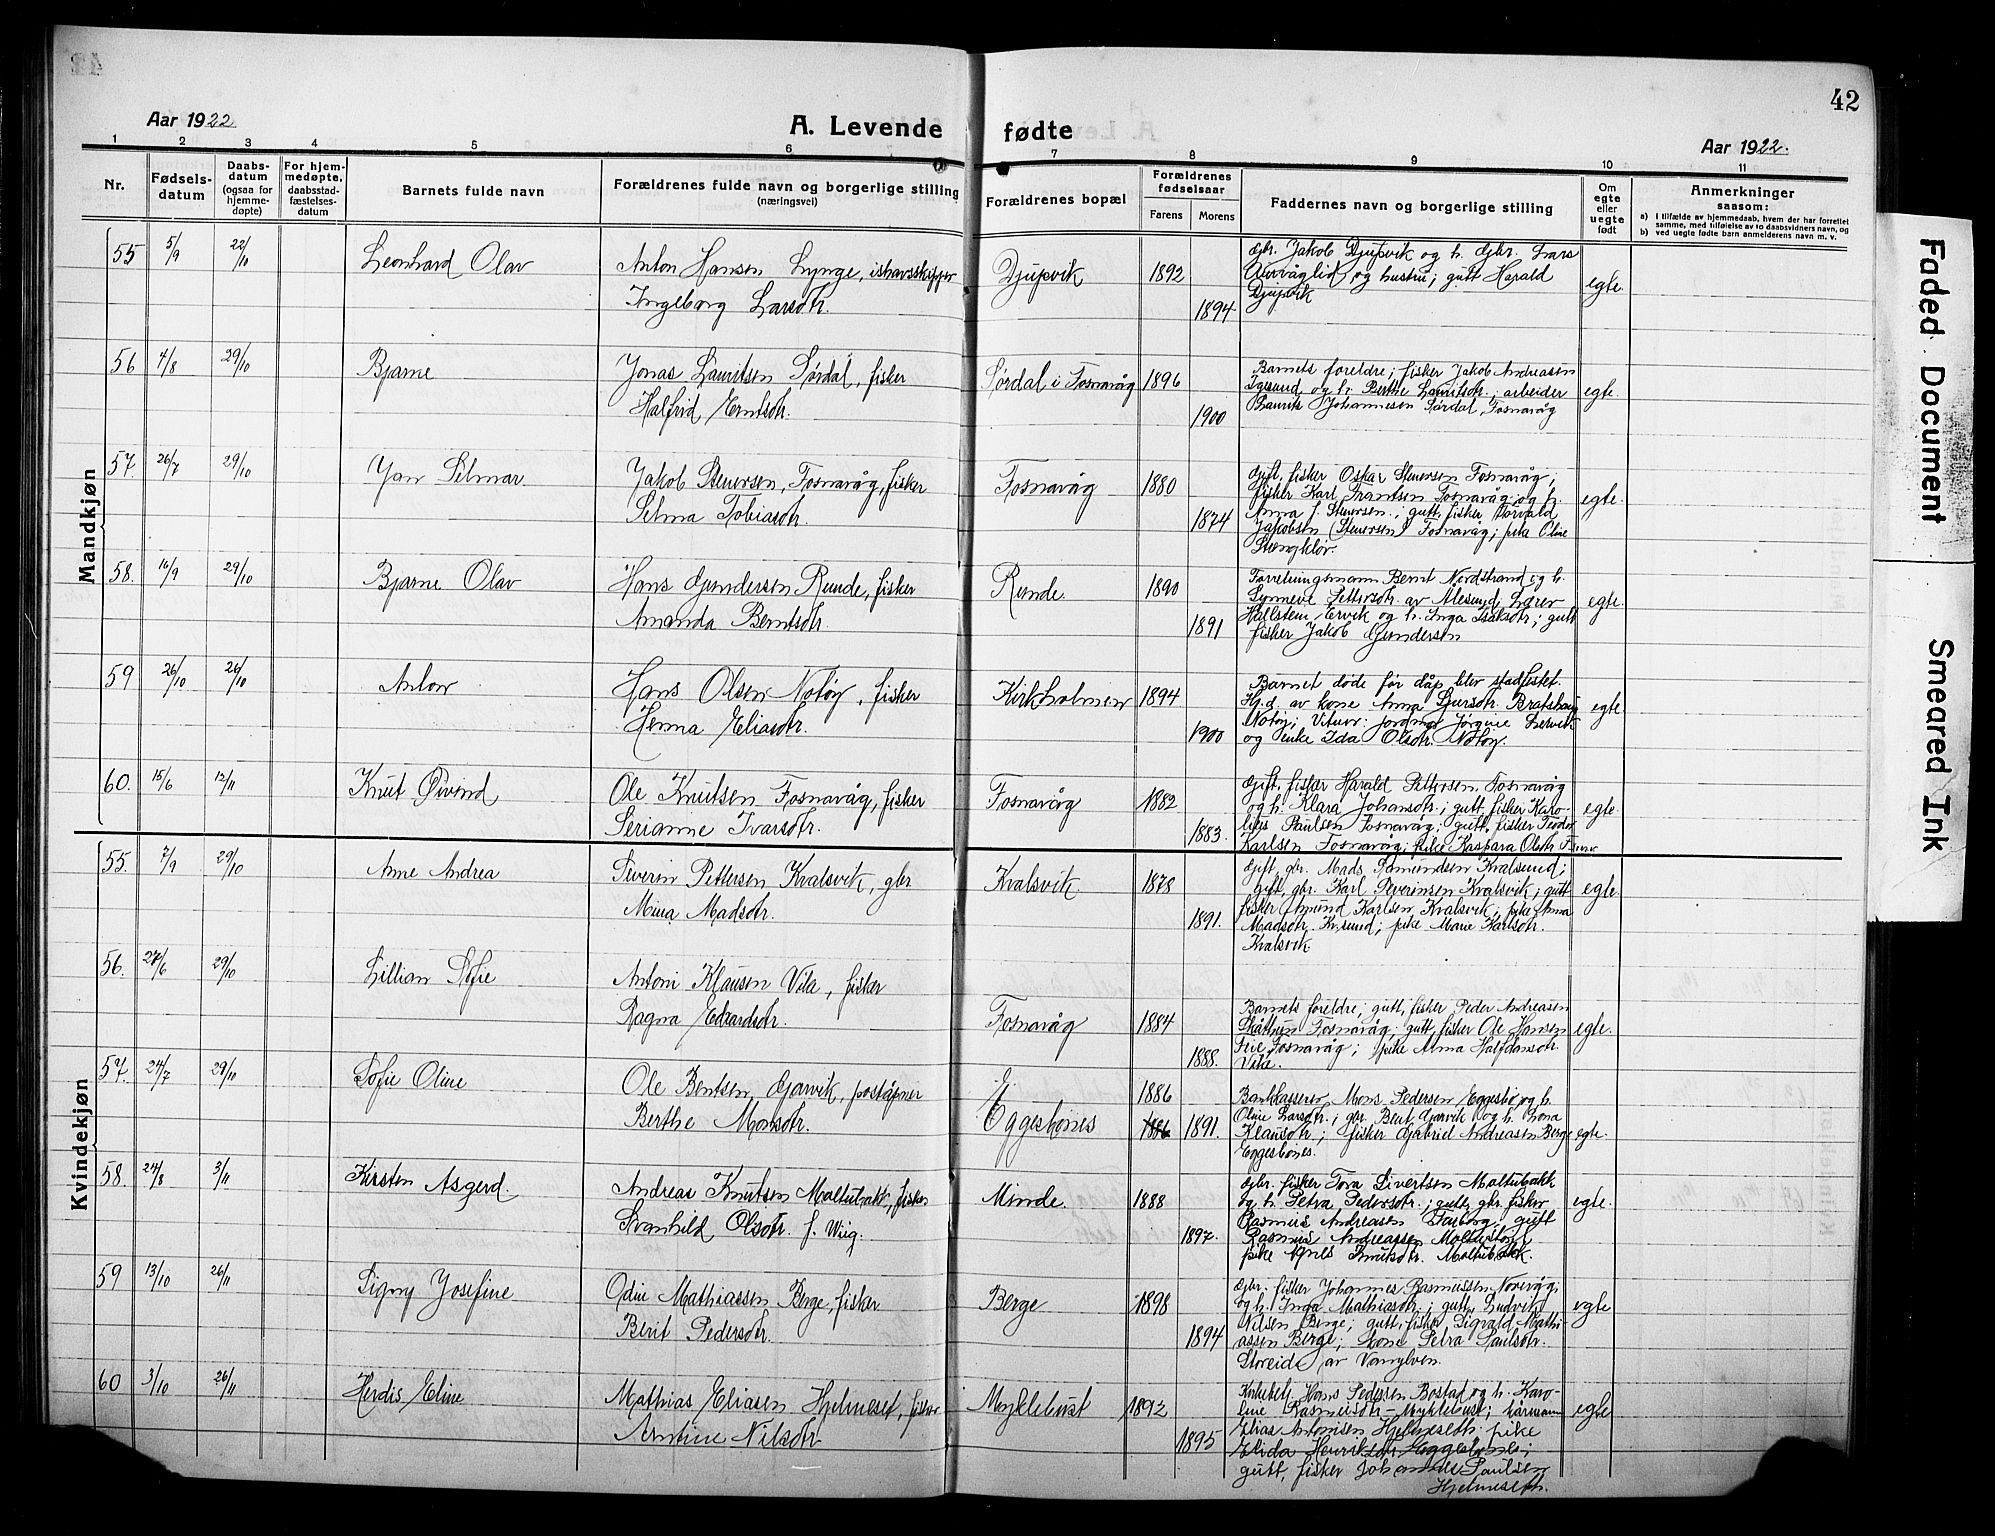 42
Aar 1922.
A. Levende fødte
Aar 1922.
1 2 3 4 5 6 7 8 9 10 11
Nr.
Fødselsdatum
Daabsdatum (ogsaa for hjemmedøpte)
For hjemmedøpte, daabsstadfæstelsesdatum
Barnets fulde navn
Forældrenes fulde navn og borgerlige stilling (næringsvei)
Forældrenes bopæl
Forældrenes fødselsaar
Farens Morens
Faddernes navn og borgerlige stilling
Om egte eller uegte født
Anmerkninger saasom:
a) I tilfælde av hjemmedaab, hvem der har forrettet samme, med tilføielse av to daabsvidners navn, og
b) ved uegte fødte barn anmelderens navn m. v.
Mandkjøn
55 5/9 22/10 Leonhard Olav
Anton Hansen Lynge, ishavsskipper
Ingeborg Larsdtr.
Djupvik 1892 1894
gbr. Jakob Djupvik og h. gbr. Lars
Aurvåglid og hustru; gutt Harald
Djupvik
egte
56 4/8 29/10 Bjarne
Jonas Lauritsen Sørdal, fisker
Halfrid Erntsdtr.
Sørdal i Fosnavåg 1896 1900
Barnets foreldre; fisker Jakob Andreasen
Igesund og h. Berthe Lauritsdtr.; arbeider
Laurits Johannesen Sørdal, Fosnavåg
egte
57. 26/7 29/10 Jan Silmar
Jakob Stenersen, Fosnavåg, fisker
Silma Tobiasdtr.
Fosnavåg 1880 1874
Gift, fisker Oskar Stenersen Fosnavåg;
fisker Karl Frantsen Fosnavåg og h.
Anna f. Stenersen.; gutt, fisker Torvald
Jakobsen (Stenersen) Fosnavåg; pike Oline
egte.
58. 16/9 29/10 Bjarne Olav
Hans Gundersen Runde, fisker
Amanda Berntsdtr.
Runde. 1890 1891
Forretningsmann Bernt Nordstrand og h.
Synneve Pettersdtr. av Ålesund; Lærer
Hallstein Ervik og h. Inga Isaksdtr; gutt
fisker Jakob Gundersen
egte.
59 26/10 26/10 Anton
Hans Olsen Notøy, fisker
Henna Eliasdtr.
Kirkholmen 1894 1900
Barnet døde før dåp blev stadfestet.
Hj.d. av kone Anna Sjursdtr. Bratshaug
Notøy; Vitner: jordmor Jørgine Leervik
og enke Ida Olsdtr. Notøy.
egte
60. 15/6 12/11 Knut Øivind
Ole Knutsen Fosnavåg, fisker
Serianne Ivarsdtr.
Fosnavåg 1882 1883.
Gift, fisker Harald Pettersen Fosnavåg
og h. Klara Johansdtr.; gutt, fisker Karo-
lius Paulsen Fosnavåg; gutt, fisker Teodor
Karlsen Fosnavåg; pike Kaspara Olsdtr
egte.
Kvindekjøn
55. 7/9 29/10 Anne Andrea
Siverin Pettersen Kvalsvik, gbr
Mina Madsdtr.
Kvalsvik. 1878 1891.
Gift, gbr. Mads Amundsen Kvalsund;
gift, gbr. Karl Severinsen Kvalsvik; gutt
fisker Amund Karlsen Kvalsvik; pike Anna
Madsdtr. Kv.sund; pike Marie Karlsdtr.
Kvalsvik
egte
56. 24/6 29/10 Lillian Sofie
Antoni Klausen Vila, fisker
Ragna Edvardsdtr.
Fosnavåg 1884 1888.
Barnets foreldre; gutt, fisker Peder Andreasen
Fosnavåg; gutt, fisker Ole Hansen
Fosnavåg; pike Anna Halfdansdtr.
egte.
57. 24/7 29/10 Sofie Oline
Ole Bentsen Gjærvik, poståpner
Berthe Monsdtr.
Eggesbønes 1886 1886 1891.
Bankkasserer Mons Pedersen Eggesbø og h.
Oline Larsdtr.; gbr. Bert Gjærvik og h. Lona
Klausdtr.; fisker Gabriel Andreasen Berge
Eggesbønes.
egte.
58. 24/8 3/11 Kirsten Asgerd.
Andreas Knutsen Moltubakk, fisker
Svanhild Olsdtr. f. Wiig.
Minde. 1888 1897.
Gbr. fisker Tora Sivertsen Moltubakk
og h. Petra Pedersdtr.; gutt, gbr. fisker
Rasmus Andreasen Tarberg; gutt
Rasmus Andreassen
pike Agnes Knutsdtr. Moltubakk.
egte.
59 13/10 26/11 Signy Josefine
Odin Mathiassen Berge, fisker
Berit Pedersdtr.
Berge 1898 1894
Gbr. fisker Johannes Rasmussen Norevåg
og h. Inga Mathiasdtr.; gutt, Ludvik
Nilsen Berge; gutt, fisker Sigvald Mathi-
assen Berge; kone Petra Paulsdtr.
Storeide av Vanylven.
egte
60 3/10 26/11 Herdis Eline
Mathias Eliasen Hjelmeset, fisker
Armine Nilsdtr
Myklebust 1892 1895
Kirketj. Hans Pedersen Bostad og h. Karo-
line Rasmusdtr – Myklebust; kårmann
Elias Antonsen Hjelmeseth; pike
Elida Henriksdtr. Eggesbønes;
gutt, fisker Johannes Paulsen
Hjelmeseth.
egte
Faded Document
Smeared Ink